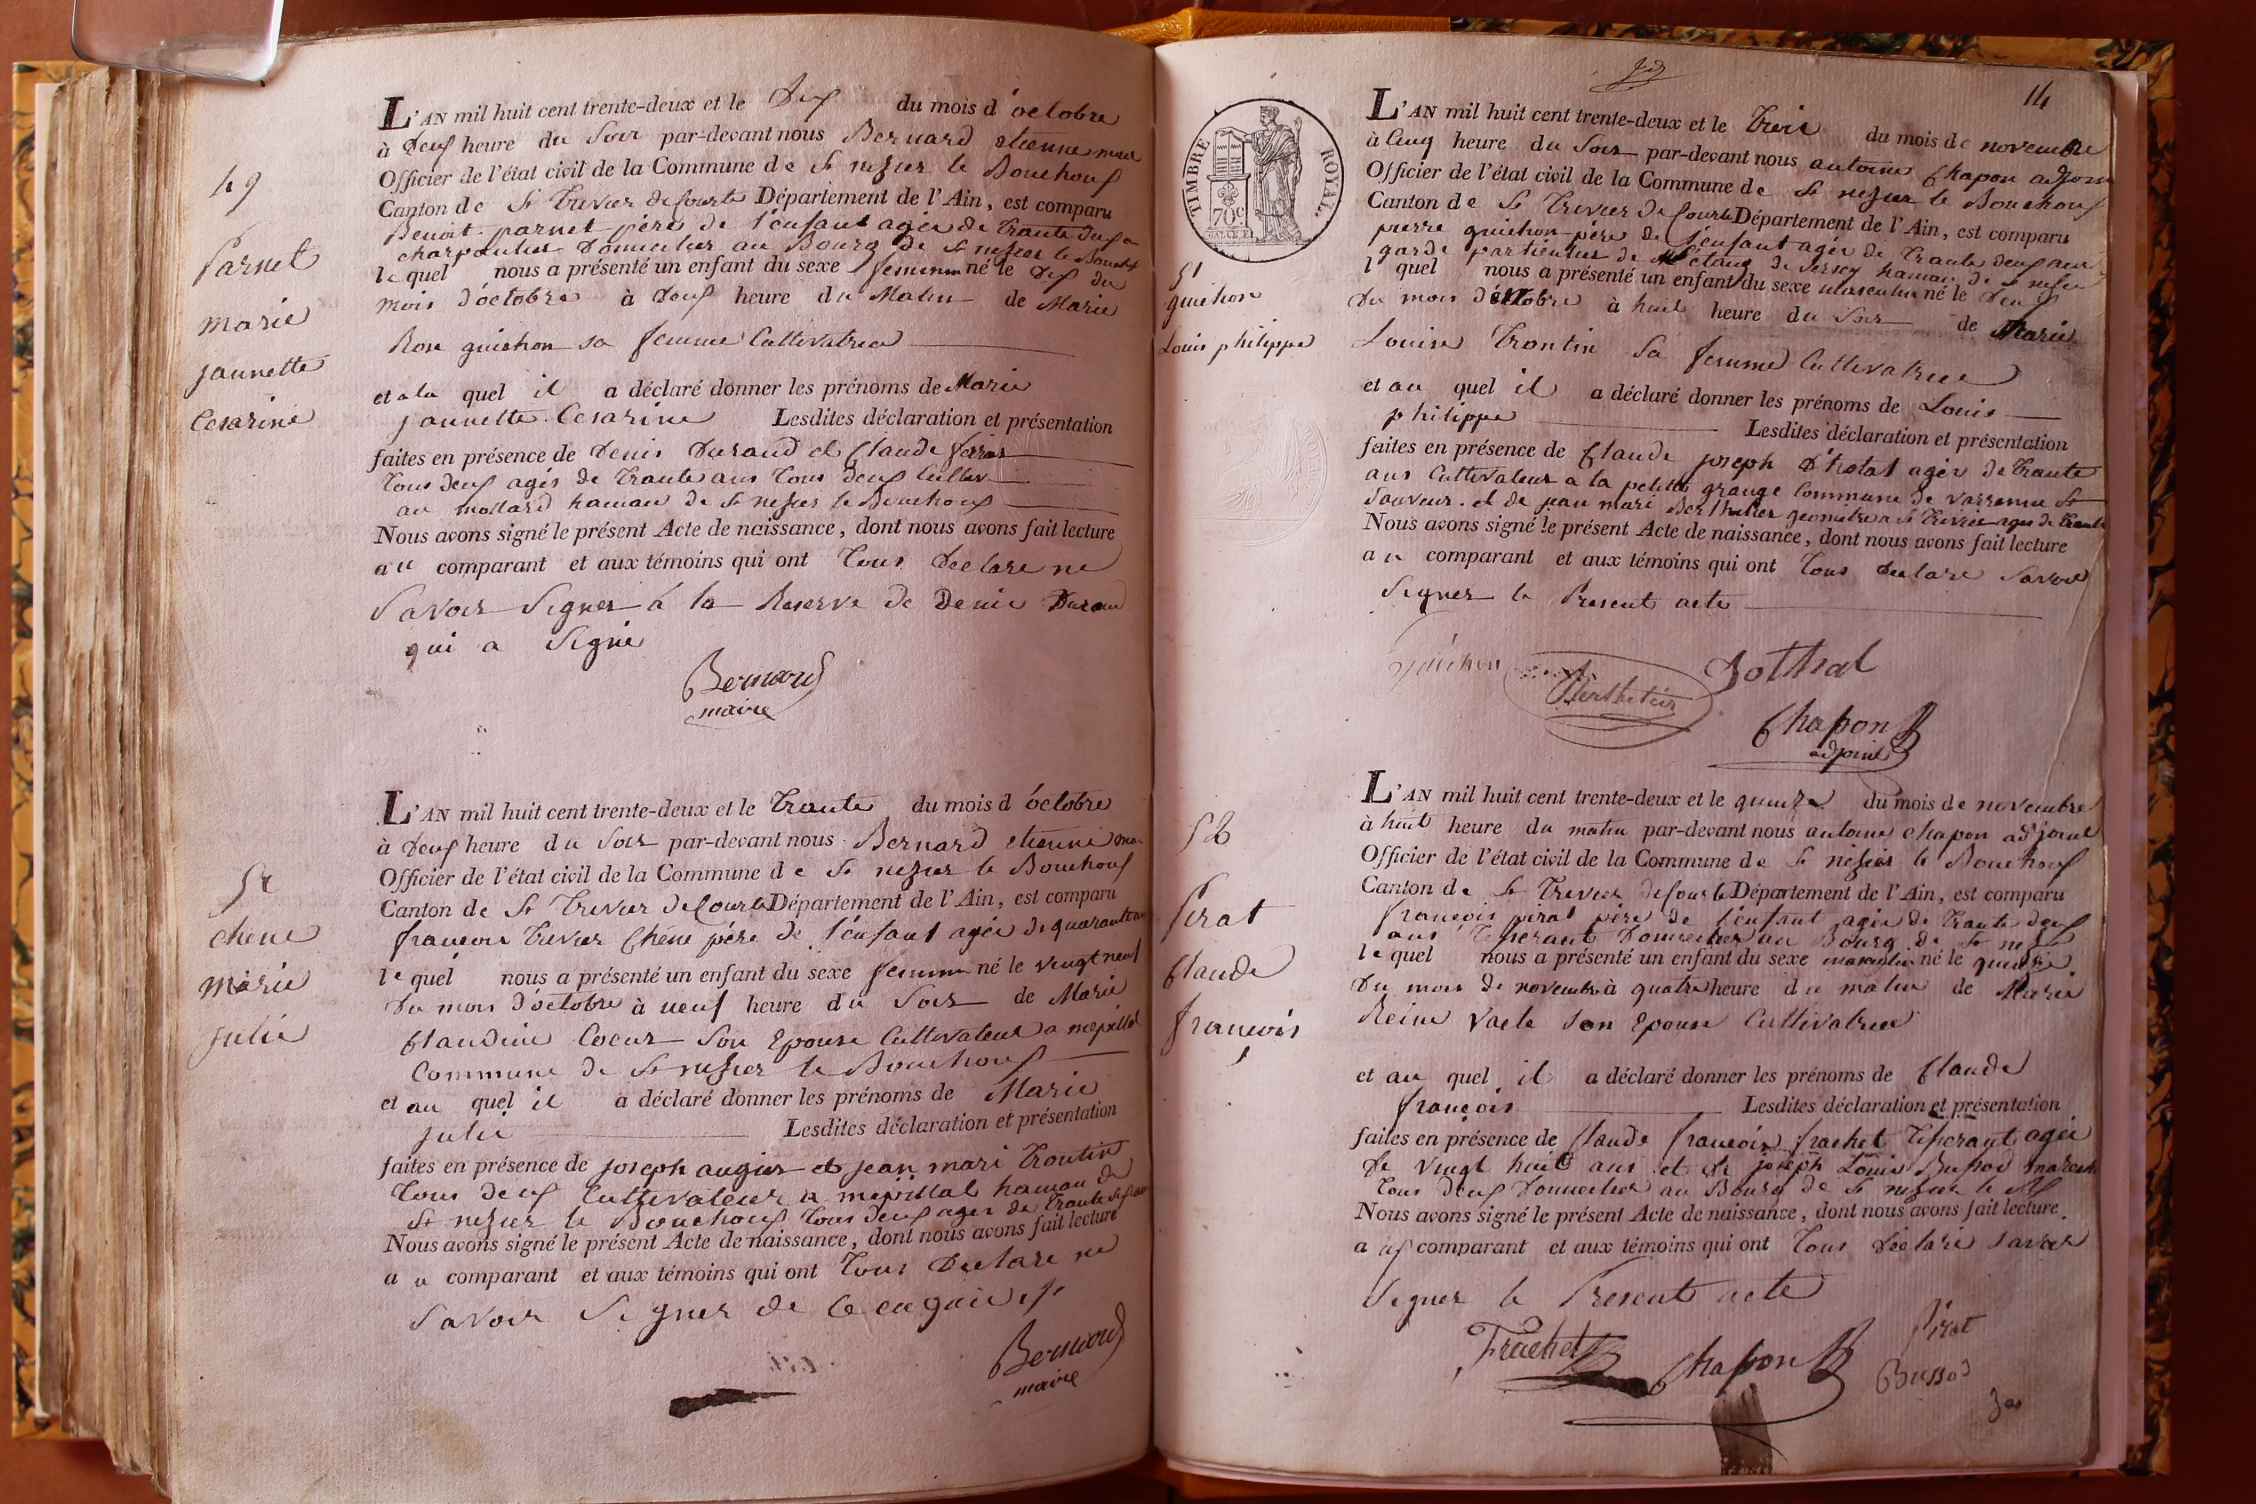 49
Parnet
marie
jannette
Cesarine
L'AN mil huit cent trente-deux et le Dix du mois d'octobre
à Deux heure du Soir par-devant nous Bernard etienne maire
Officier de l'état civil de la Commune de St nizier le Bouchoux
Canton de St Trivier de Courte Département de l'Ain, est comparu
Benoit parnet père de l'enfant agée de trante
charpantier Domicilier au Bourg de St nizier le Bouchoux
lequel nous a présenté un enfant du sexe feminin né le Dix du
mois d'octobre à Deux heure du Matin de Marie
Rose guichon sa femme Cultivatrice
et a la quel il a déclaré donner les prénoms de Marie
jannette Cesarine Lesdites déclaration et présentation
faites en présence de Denis Durand et Claude
Tous Deux agés de trante ans tous Deux Cultiv
au mollard hamau de St nizier le Bouchoux
Nous avons signé le présent Acte de naissance, dont nous avons fait lecture
au comparant et aux témoins qui ont Tous Declare ne
Savoir Signer à la Reserve de Denis Durand
qui a Signé
Bernard
maire
chene
marie
julie
L'AN mil huit cent trente-deux et le trante du mois d'octobre
à Deux heure du Soir par-devant nous Bernard etienne
Officier de l'état civil de la Commune de St nizier le Bouchoux
Canton de St Trivier de Courte Département de l'Ain, est comparu
françois Trivier Chêne père de l'enfant agée de quarante
lequel nous a présenté un enfant du sexe feminin né le vingt neuf
Du mois d'octobre à neuf heure du Soir de Marie
Claudine Coeur Son Epouse Cultivateur a
Commune de St nizier le Bouchoux
et au quel il a déclaré donner les prénoms de Marie
julie Lesdites déclaration et présentation
faites en présence de joseph augier et jean mari Trontin
Tous Deux Cultivateur a hamau de
St nizier le Bouchoux tous Deux ager de trante
Nous avons signé le présent Acte de naissance, dont nous avons fait lecture
au comparant et aux témoins qui ont Tous Declare ne
Savoir Signer de ce
Bernard
maire
14
TIMBRE ROYAL
70c
51
guichon
Louis philippe
L'AN mil huit cent trente-deux et le Trois du mois de novembre
à Cinq heure du Soir par-devant nous antoine Chapon adjoint
Officier de l'état civil de la Commune de St nizier le Bouchoux
Canton de St Trivier de Courte Département de l'Ain, est comparu
pierre guichon père de l'enfant agée de trante deux ans
garde particulier de hamau de St nizier
lquel nous a présenté un enfant du sexe masculin né le Deux
Du mois d'octobre à huit heure du Soir de Marie
Louise Trontin Sa femme Cultivatrice
et au quel il a déclaré donner les prénoms de Louis
philippe Lesdites déclaration et présentation
faites en présence de Claude joseph D'hotal agée de trante
ans Cultivateur a la petite grange Commune de varrenne St
Sauveur et de jean mari Berthelier geometre a St Trivier agé de trante
Nous avons signé le présent Acte de naissance, dont nous avons fait lecture
au comparant et aux témoins qui ont Tous Declare Savoir
Signer le Present acte
guichon
Dothal
Chapon
adjoint
52
Pirat
Claude
françois
L'AN mil huit cent trente-deux et le quinze du mois de novembre
à huit heure du matin par-devant nous antoine chapon adjoint
Officier de l'état civil de la Commune de St nizier le Bouchoux
Canton de St Trivier de Courte Département de l'Ain, est comparu
françois pirat père de l'enfant agée de trante deux
ans Tisserant Domicilier au Bourg de St nizier
lequel nous a présenté un enfant du sexe masculin né le quinze
Du mois de novembre à quatre heure du matin de Marie
Reine Son Epouse Cultivatrice
et au quel il a déclaré donner les prénoms de Claude
françois Lesdites déclaration et présentation
faites en présence de Claude françois frachet Tisserant agée
de vingt huit ans et de joseph Louis Bussod
Tous Deux Domicilier au Bourg de St nizier le
Nous avons signé le présent Acte de naissance, dont nous avons fait lecture
aux comparant et aux témoins qui ont Tous Déclaré Savoir
Signer le Present acte
Frachet
Chapon
Pirat
Bussod